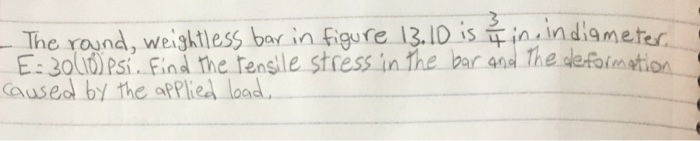 The round, weightless bar in figure 13.10 is 3/4 in. in diameter.
E=30(10⁶)psi. Find the tensile stress in the bar and The deformation
caused by the applied load.